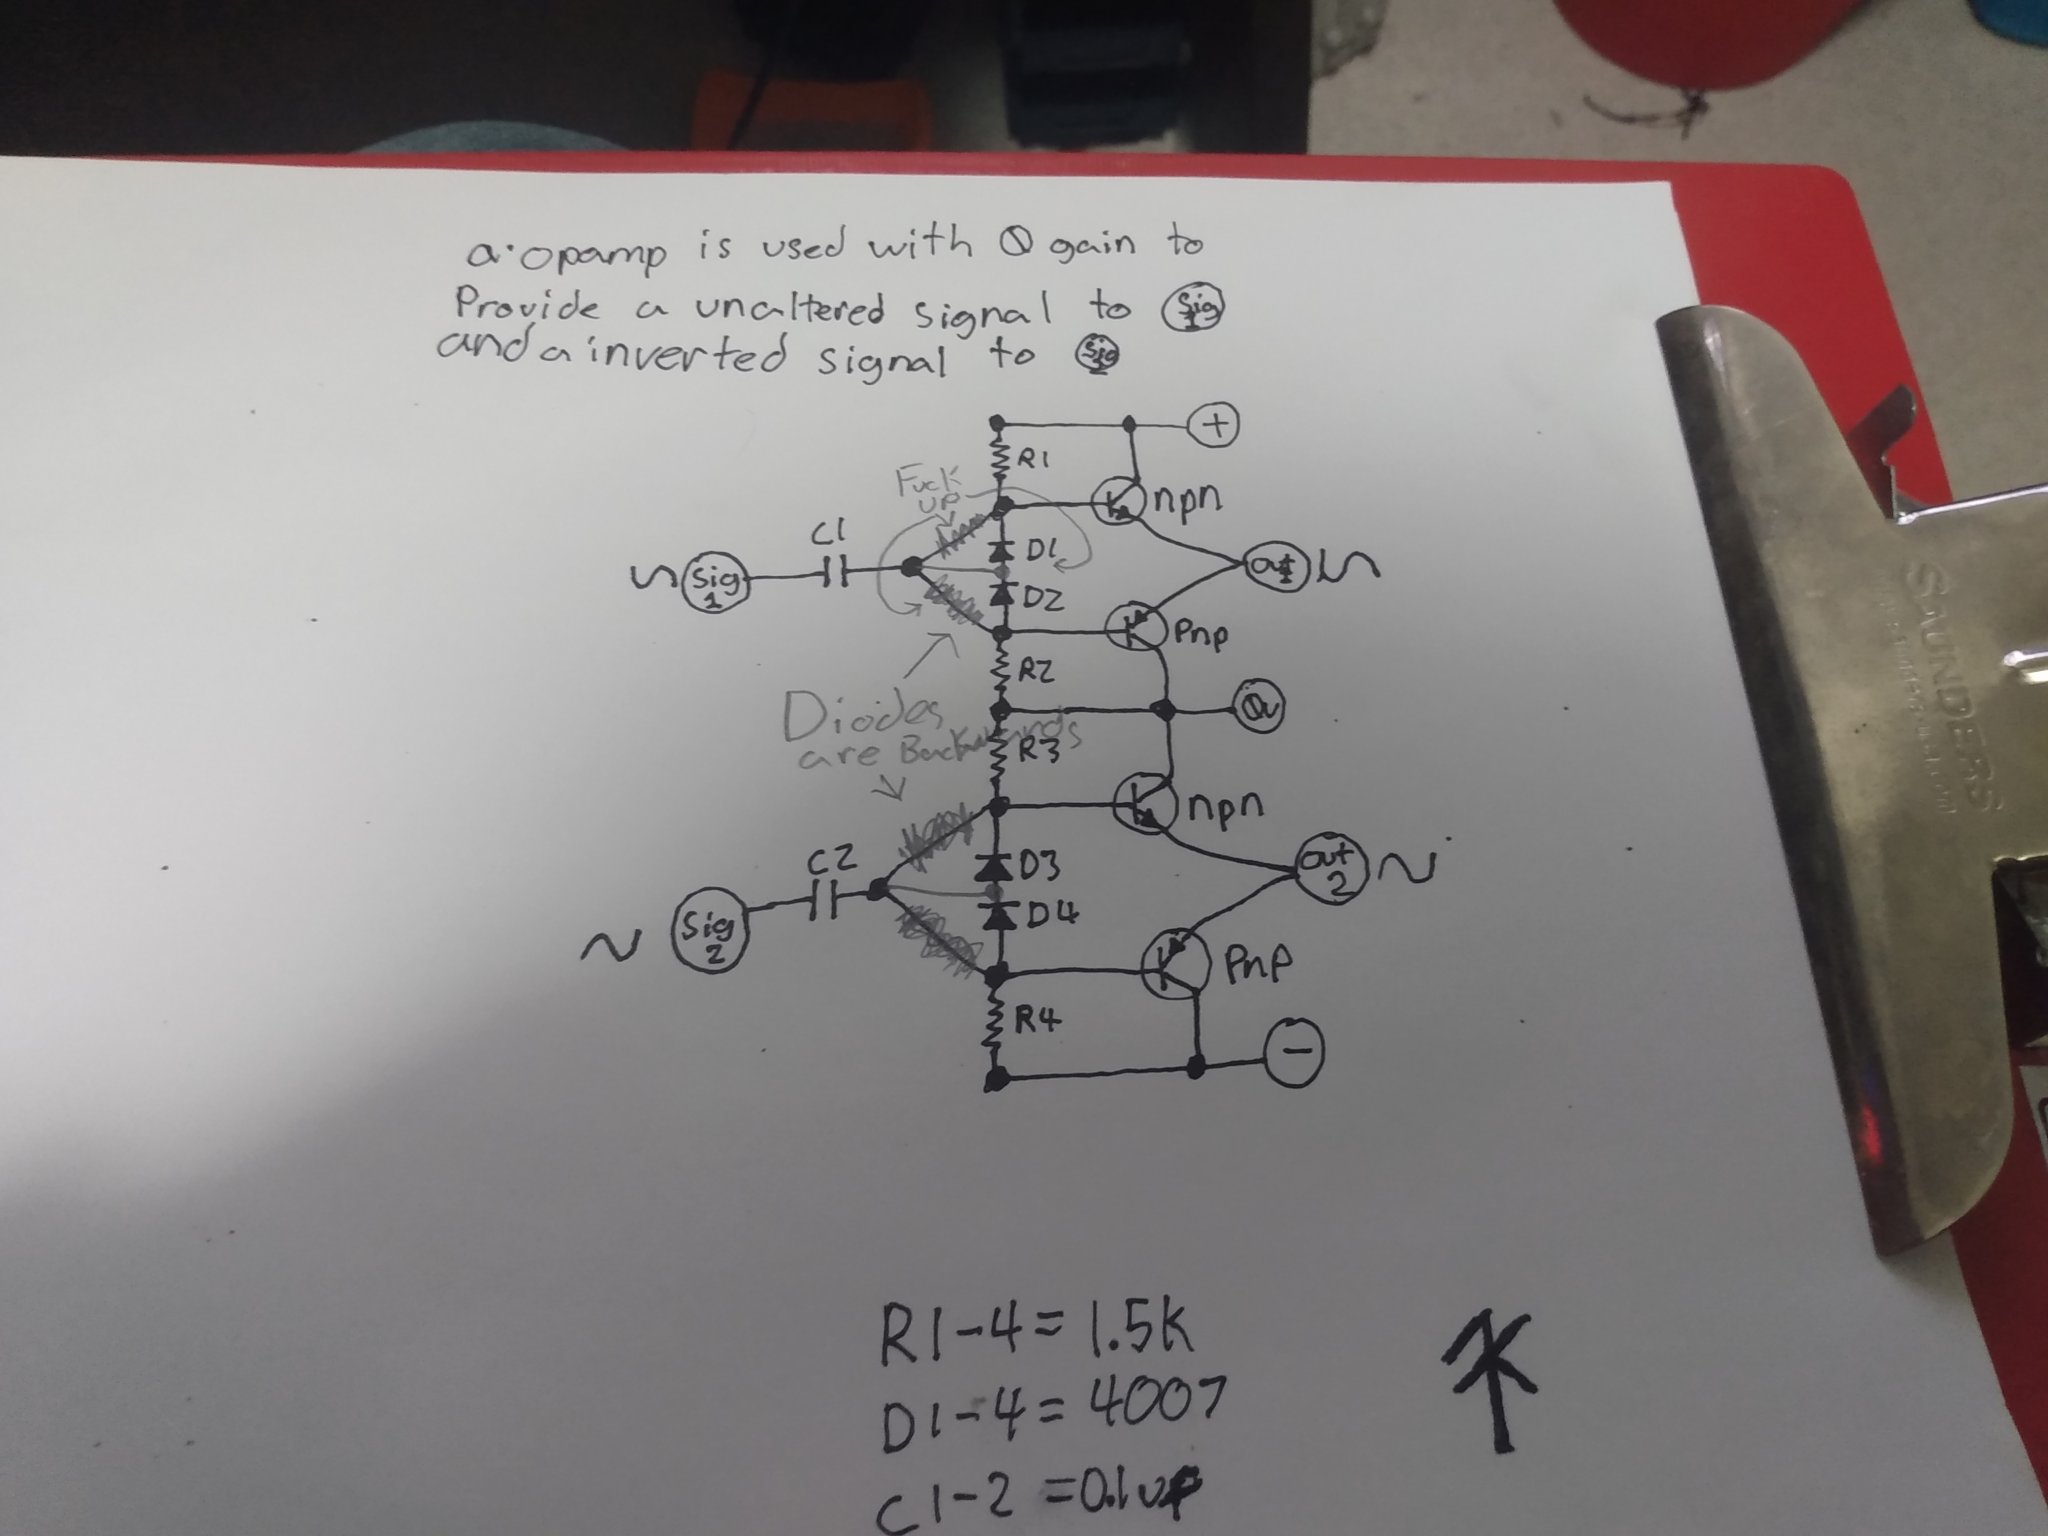 a opamp is used with 0 gain to
Provide a unaltered signal to Sig 1
and a inverted signal to Sig 2
+
R1
Fuck up
npn
C1
D1
Sig 1
out 1
D2
pnp
R2
Diodes
0v
are Backwards
R3
npn
C2
D3
out 2
D4
Sig 2
PnP
R4
-
R1-4 = 1.5K
D1-4 = 4007
C1-2 = 0.1uf
SAUNDERS